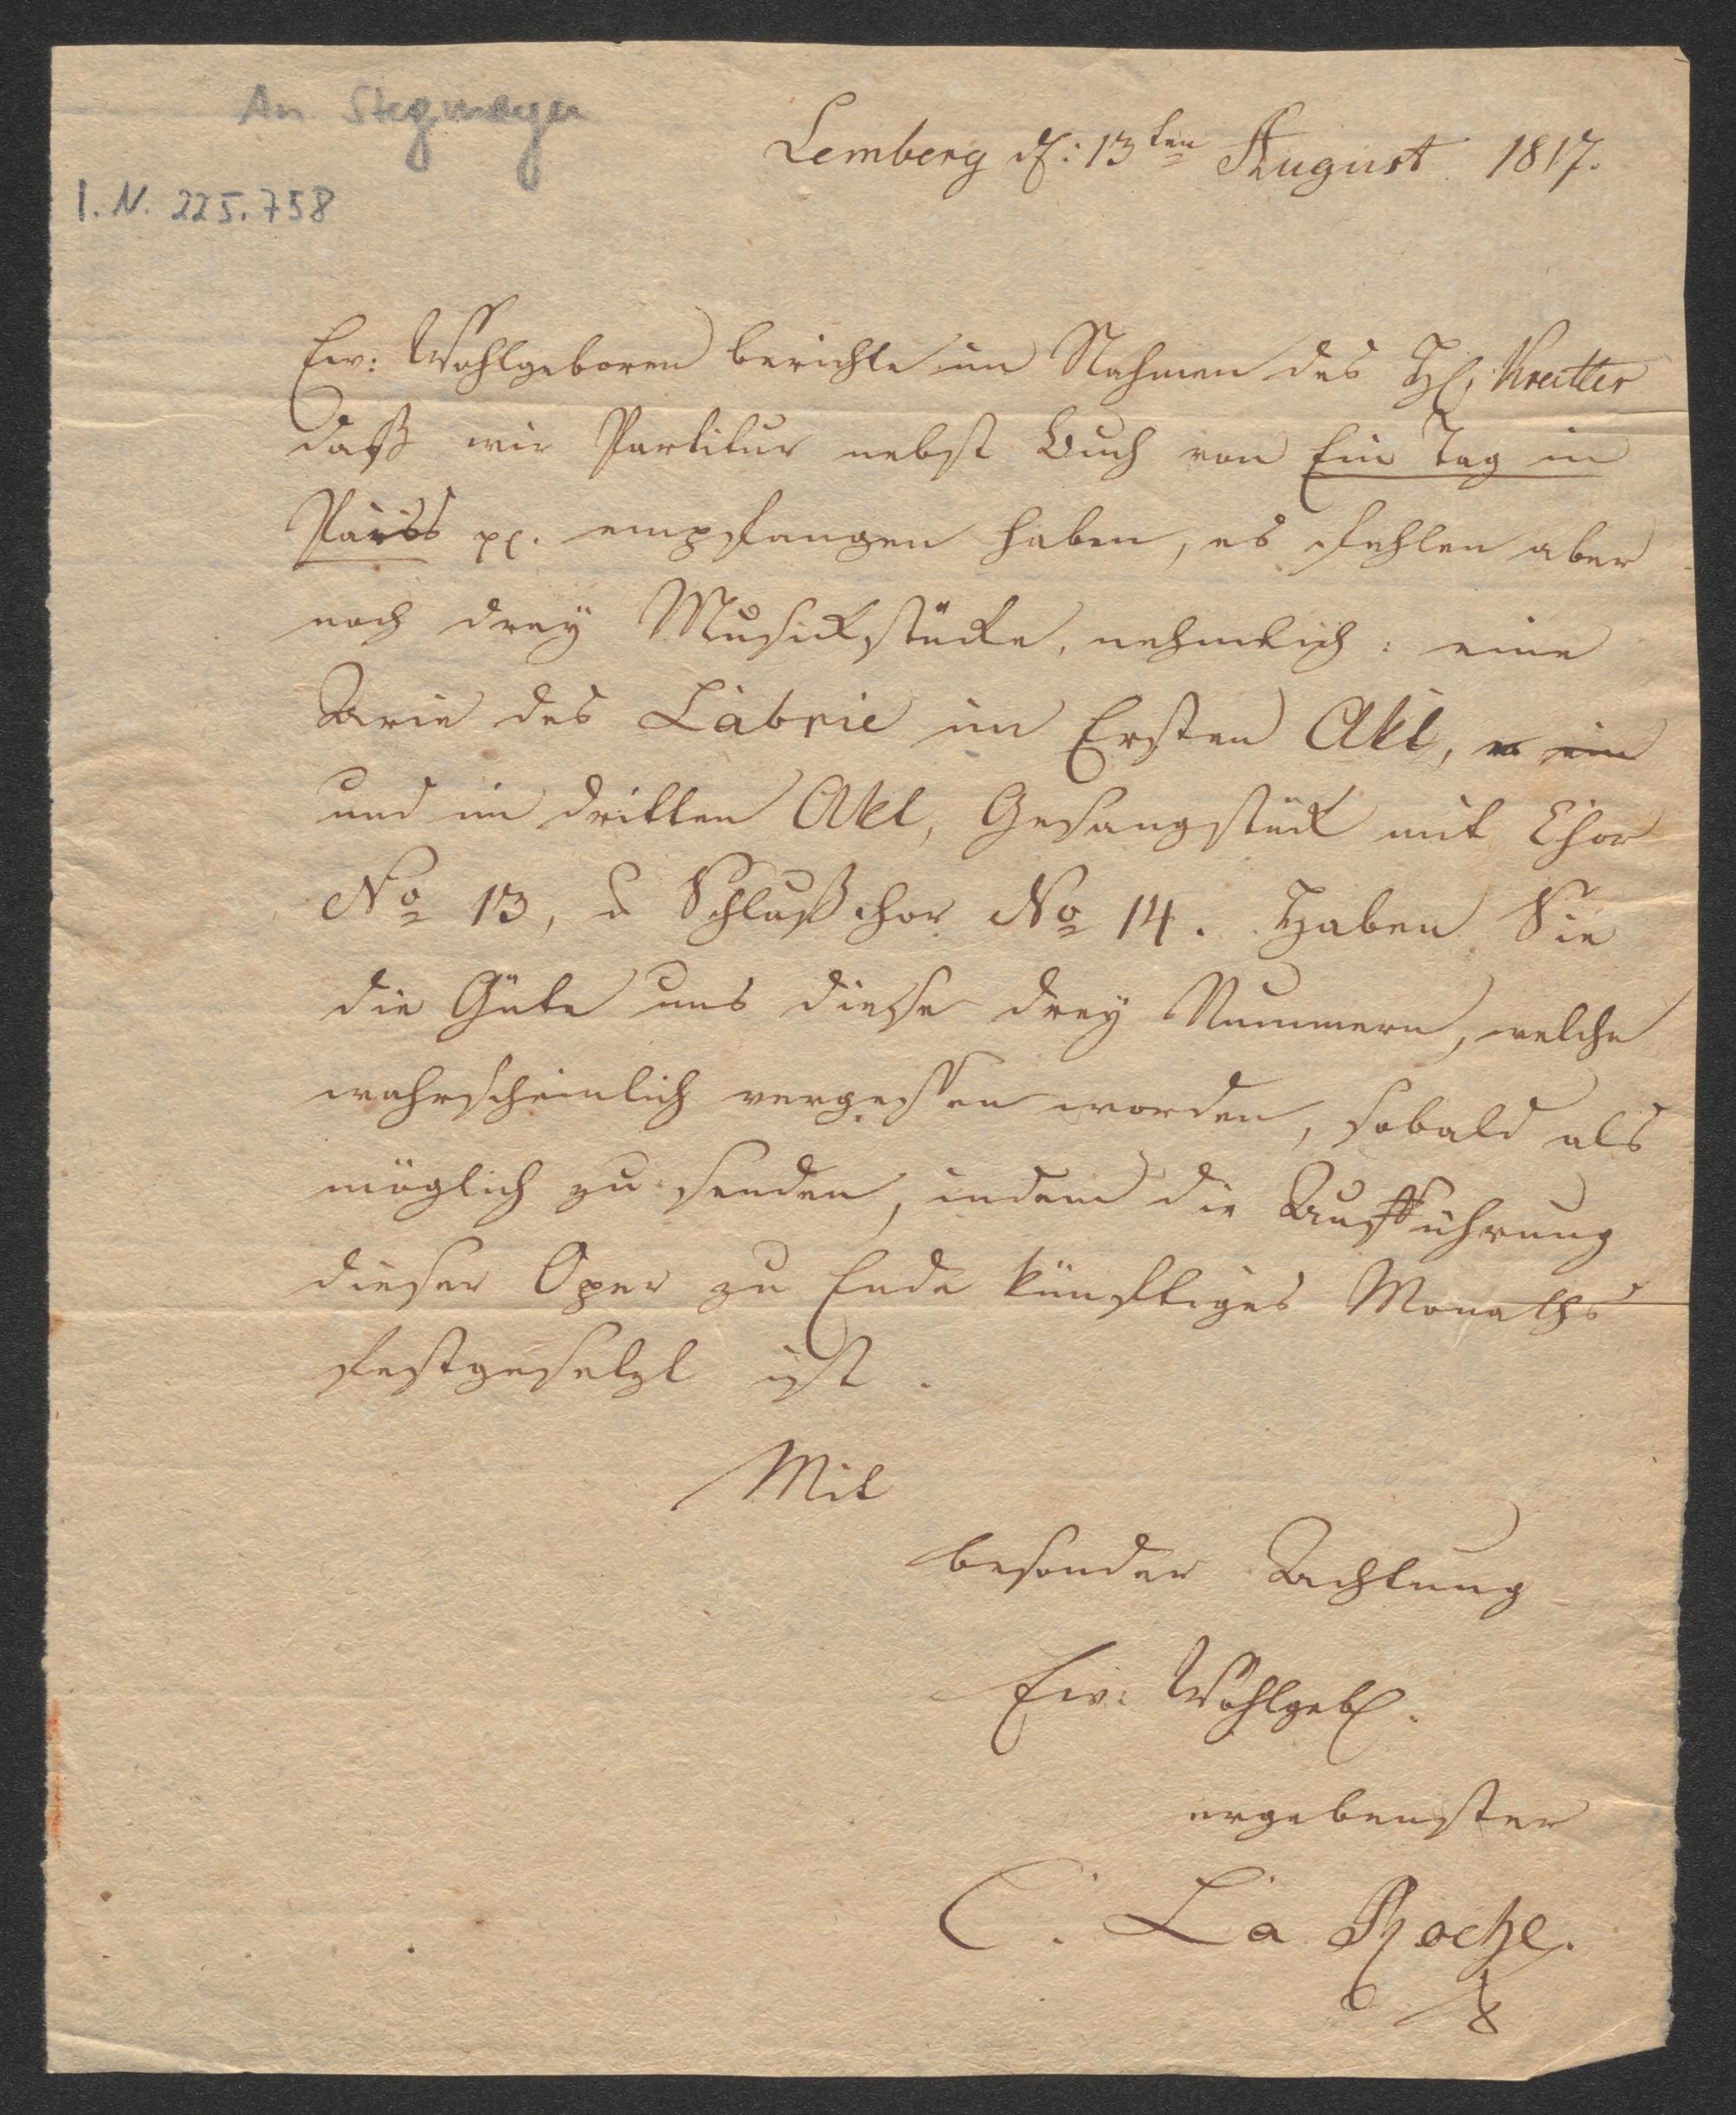 An Stegmayer
Lemberg d: 13ten August 1817.
I. N. 225.758
Ew: Wohlgeboren berichte im Nahmen des H: Kratter
daß wir Partitur nebst Buch von Ein Tag in
Paris pp. empfangen haben, es fehlen aber
noch drey Musickstücke, nehmlich: eine
Arie des Labrie im Ersten Akt, ein
und im dritten Akt, Gesangstück mit Chor
No 13, u Schlußchor No 14. Haben Sie
die Güte uns diese drey Nummern, welche
wahrscheinlich vergessen worden, sobald als
möglich zu senden, indem die Aufführung
dieser Oper zu Ende künftiges Monaths
festgesetzt ist.
Mit
besonder Achtung
Ew: Wohlgeb.
ergebenster
C. La Roche.